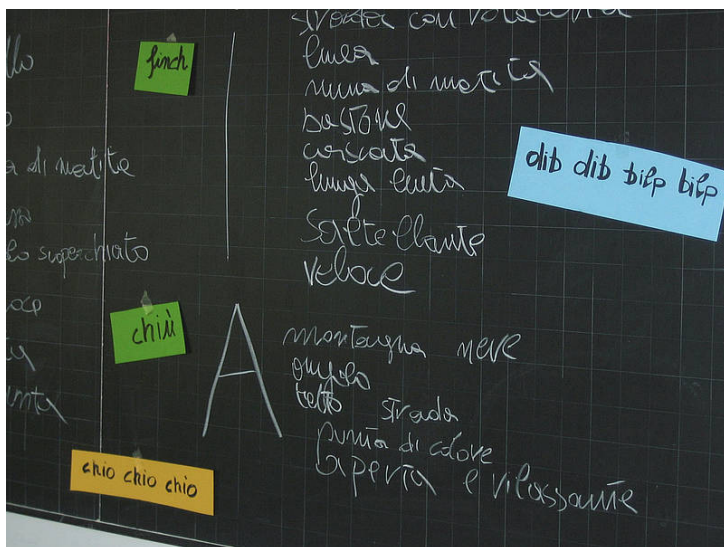 finch
di matite
chiù
chio chio chio
I
linea
mina di matita
bastone
cascata
lunga lenta
saltellante
veloce
dib dib bilp bilp
A
montagna neve
angolo
tetto strada
punta di colore
aperta e rilassante